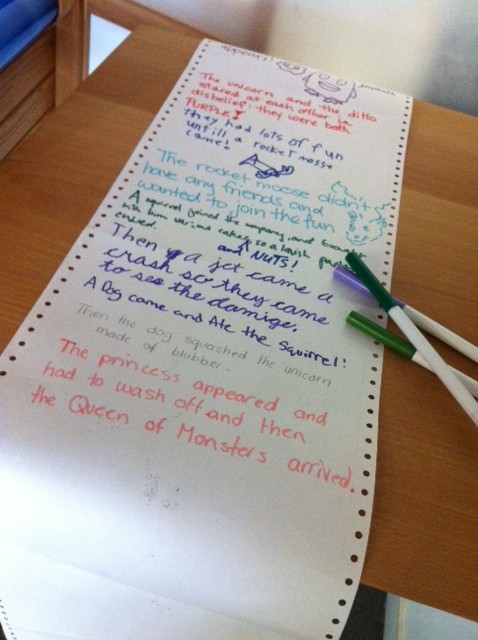 appears!
The unicorn and the ditto
stared at each other in
disbelief; they were both
PURPLE!
they had lots of fun
untill a rocket mosse
came!
The rocket moose didn't
have any friends and
wanted to join the fun
A squirrel joined the company, and brought
with him various cakes, so a lavish
ensued.
and NUTS!
Then a jet came a
crash so they came
to see the damige.
A Dog came and Ate the Squirrel!
Then the dog squashed the unicorn
made of blubber.
The princess appeared and
had to wash off and then
the Queen of Monsters arrived.